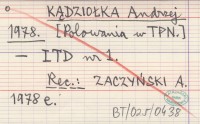 KĄDZIOŁKA Andrzej
1978. [Polowania w TPN.]
— ITD nr 1.
Rec.: ZACZYŃSKI A.
1978 e.
BT/025/0438